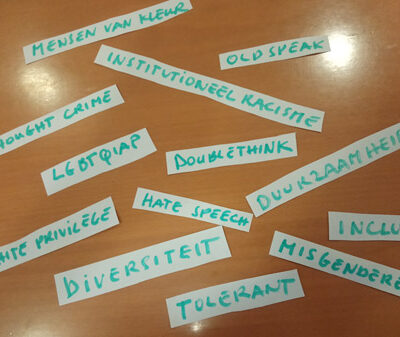 MENSEN VAN KLEUR
OLDSPEAK
INSTITUTIONEEL RACISME
OUGHT CRIME
LGBTQIAP
DOUBLETHINK
DUURZAAMHEID
HATE SPEECH
INCLU
ITE PRIVILEGE
DIVERSITEIT
MISGENDERE
TOLERANT